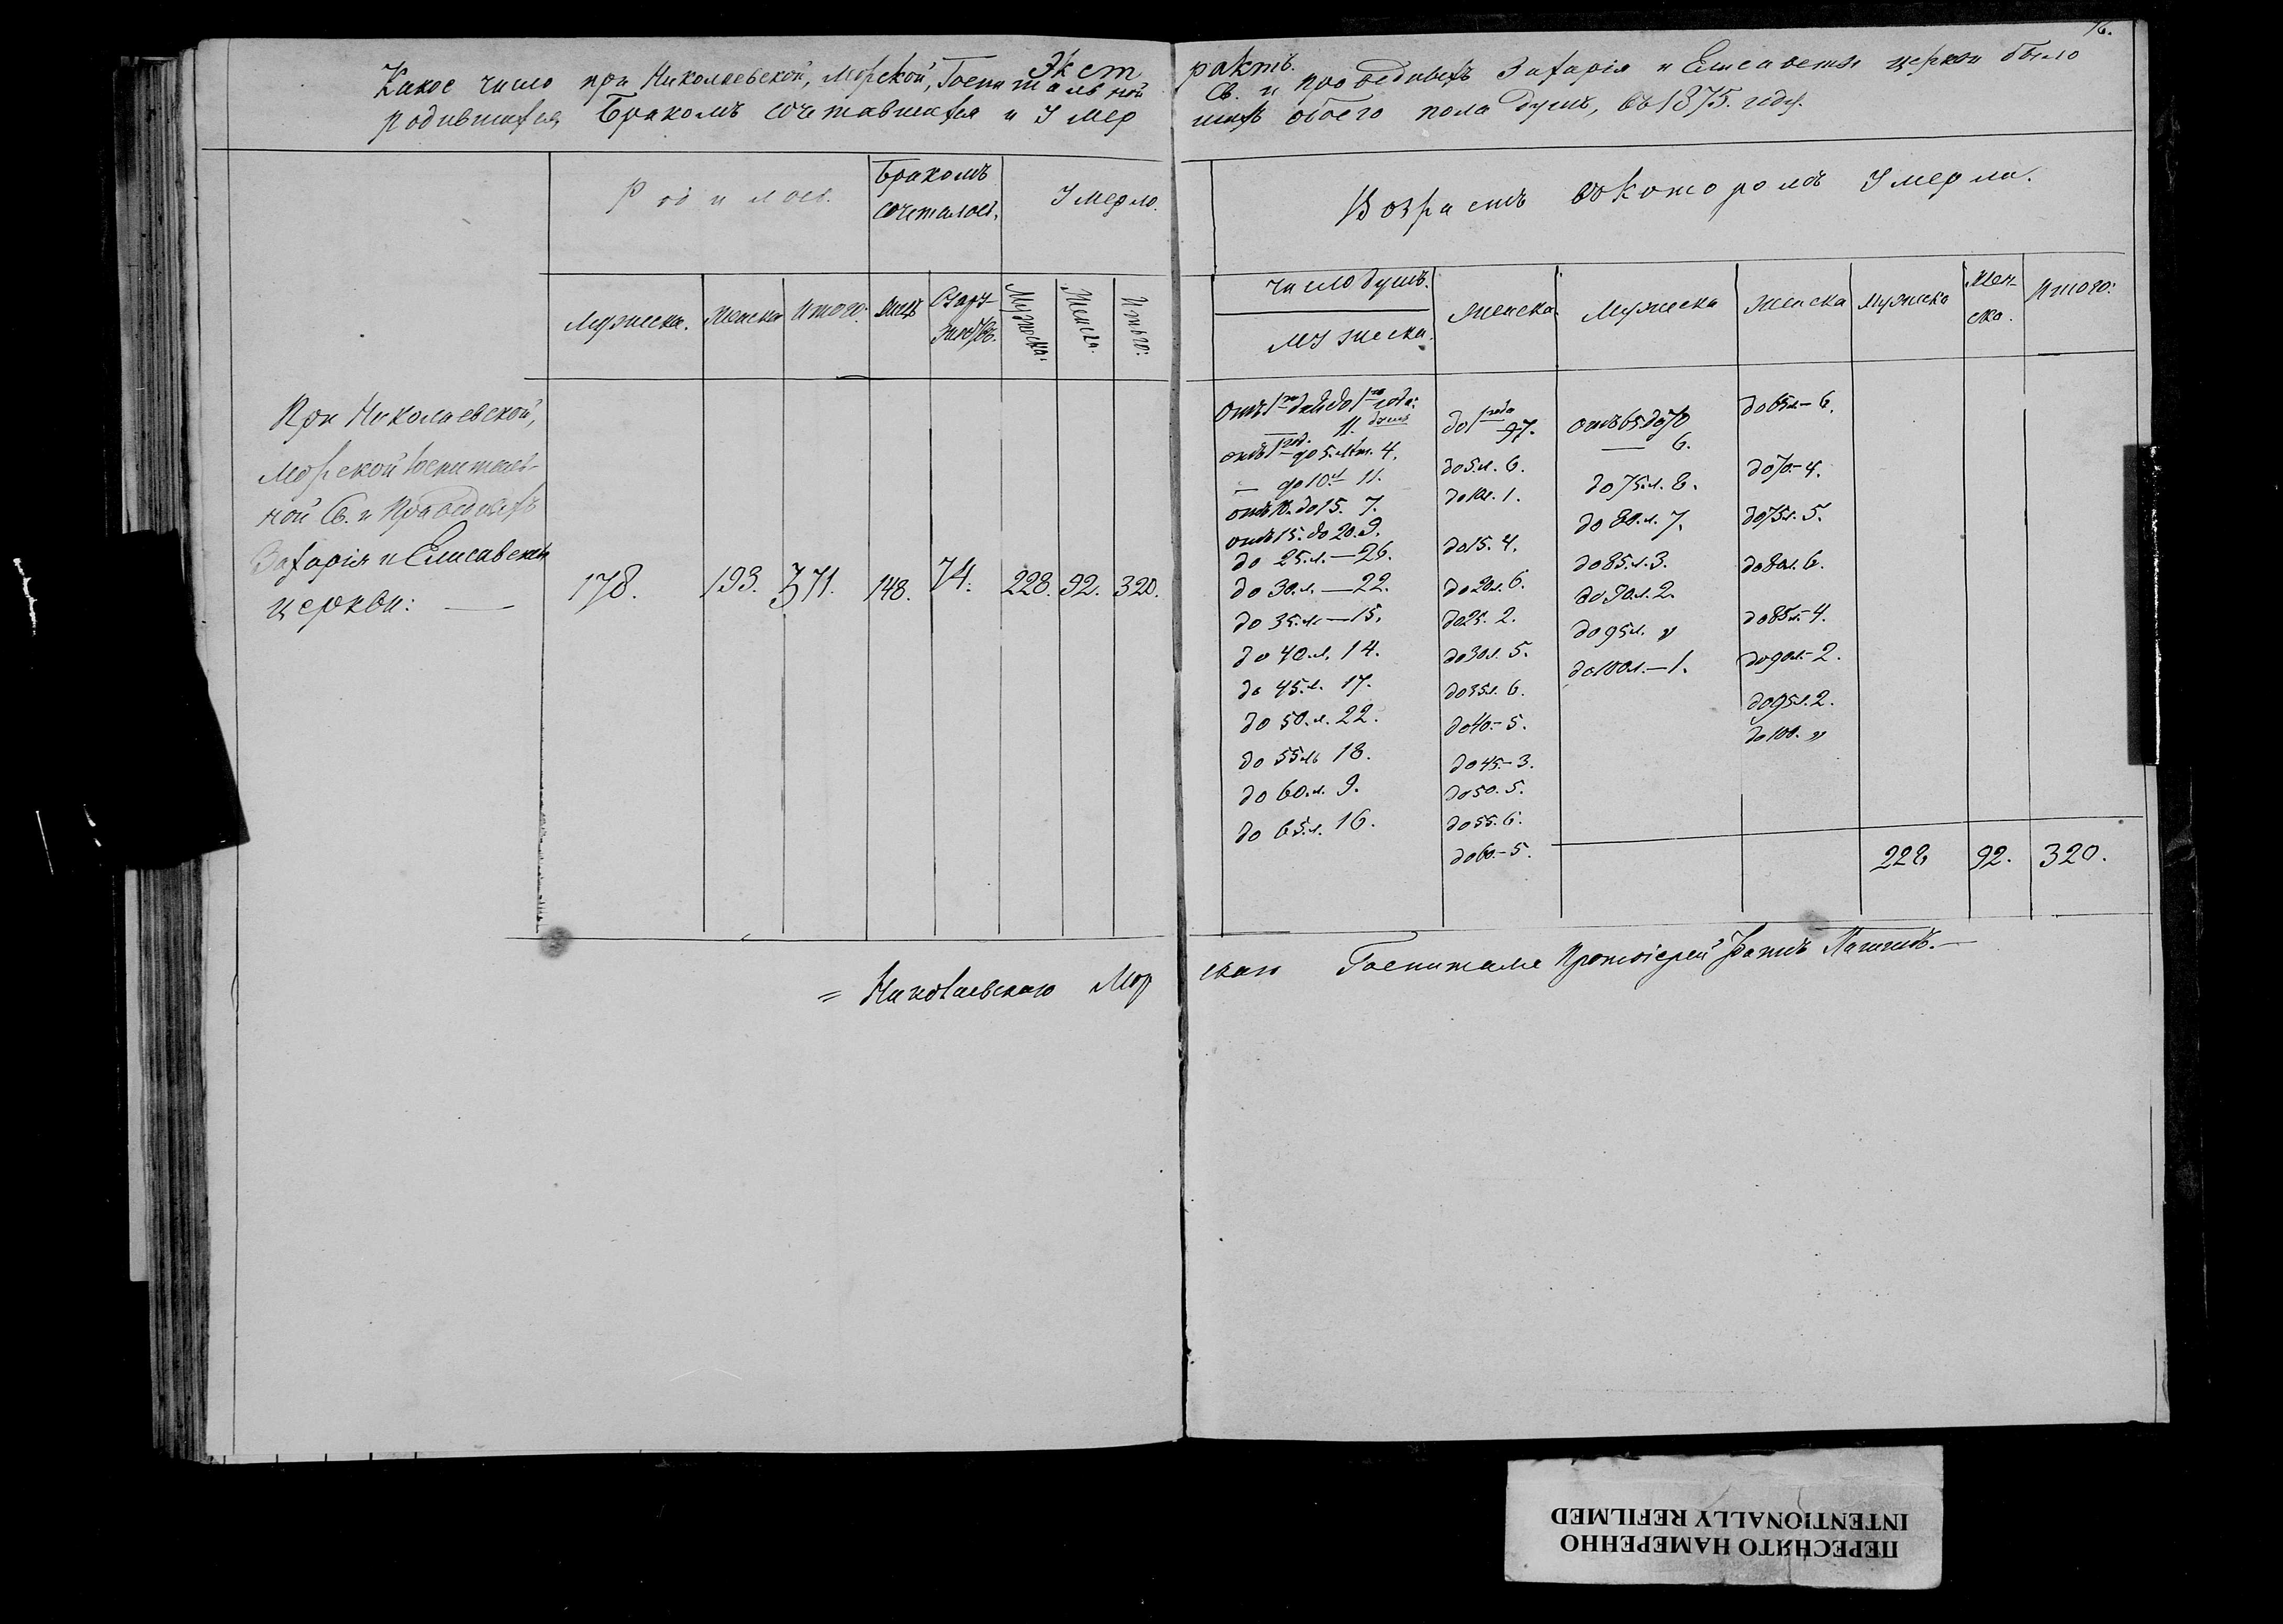 16.
Экстрактъ.
Какое число при Николаевской, Морской, Госпитальной Св. и праведныхъ Захарія и Елисаветы церкви было
родившихся, Бракомъ сочетавшихся и Умершихъ обоего пола душъ, въ 1875. году.
Родилось.
Бракомъ сочеталось.
Умерло.
Мужеска. Женска Итого:
Мужеска: Женска. Итого:
При Николаевской,
Морской Госпиталь-
ной Св. и Праведныхъ
Захарія и Елисаветы
церкви: —
178. 193. 371. 148. 74. 228. 92. 320.
Возрастъ въ которомъ Умерли.
Число душъ.
мужеска.
Женска. Мужеска Женска Мужеска Жен-
ска. Итого:
до 1 года:
11. душъ
отъ 1 год. до 5. лѣт. 4.
— до 10. л 11.
отъ 10. до 15. 7.
отъ 15. до 20. 9.
до 25. л. — 26.
до 30. л. — 22.
до 35. л — 15.
до 40. л. 14.
до 45. л. 17.
до 50. л. 22.
до 55 л. 18.
до 60. л. 9.
до 65. л. 16.
до 1 года
до 5. л. 6.
до 10 л. 1.
до 15. 4.
до 20 л. 6.
до 25. 2.
до 30 л. 5.
до 35 л. 6.
до 40. — 5.
до 45. — 3.
до 50. 5.
до 55. 6.
до 60. — 5.
отъ 65 до 70
— 6.
до 75. л. 8.
до 80. л. 7.
до 85. л. 3.
до 90. л. 2.
до 95 л. „
до 100 л. — 1.
до 65 л — 6.
до 70. — 4.
до 75 л. 5.
до 80 л. 6.
до 85 л. — 4.
до 90 л. — 2.
до 95 л. 2.
до 100. „
228 92. 320.
= Николаевскаго Морскаго Госпиталя Протоіерей
ПЕРЕСНЯТО НАМЕРЕННО
INTENTIONALLY REFILMED